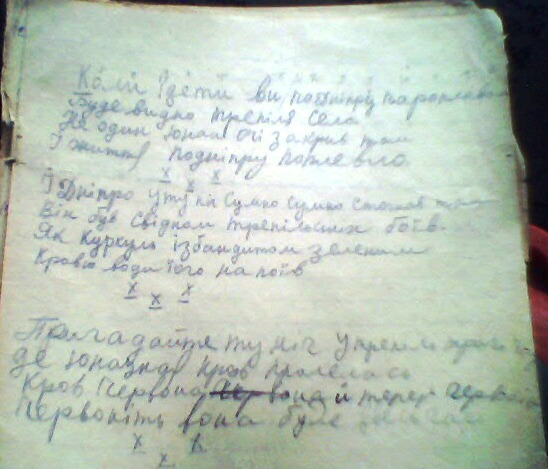 Коли їдети ви, поДніпрі пароплавом
Буде видно трепіля села
Не один юнак очі закрив там
І життя подніпру поплевло
х х х
І Дніпро уту ніч Сумно Сумно стогнав
Він був Свідком трепільских боїв.
Як куркуль ізбандитом зеленим
Кровю води його напоїв
х х х
Пригадайте ту ніч
де юнацька кров пролелась
Кров червона вона й тепер червона
Червоніть вона буде
х х х